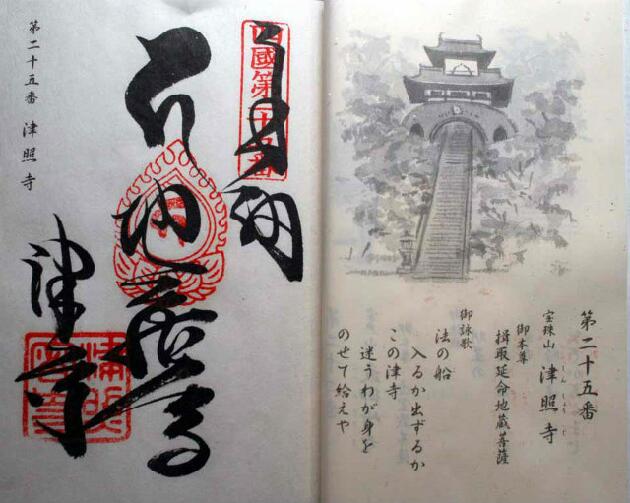 第二十五番
宝珠山 津照寺
しんしょうじ
御本尊
楫取延命地蔵菩薩
御詠歌
法の船
入るか出ずるか
この津寺
迷うわが身を
のせて給えや
四國第二十五番
津寺
第二十五番 津照寺